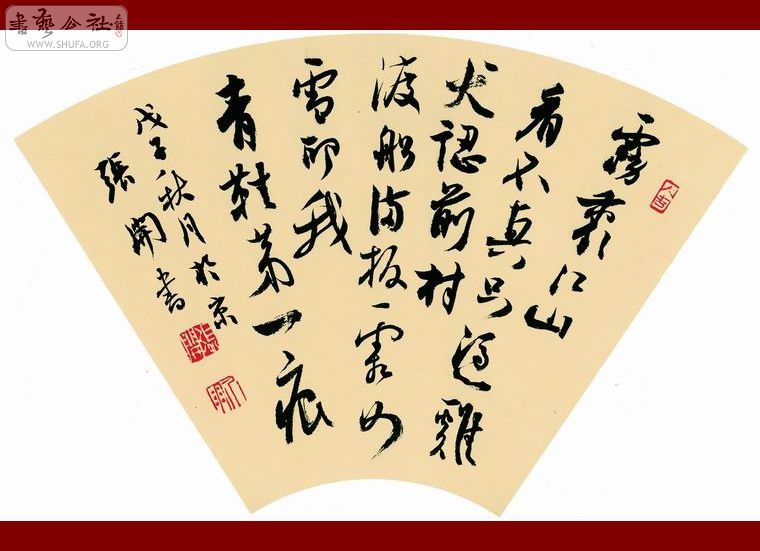 書藝公社
WWW.SHUFA.ORG
霧裹江山
看不真只雞
犬認前村
渡船滿板霜如
雪印我
青鞋第一痕
戊子秋月於京
張開書